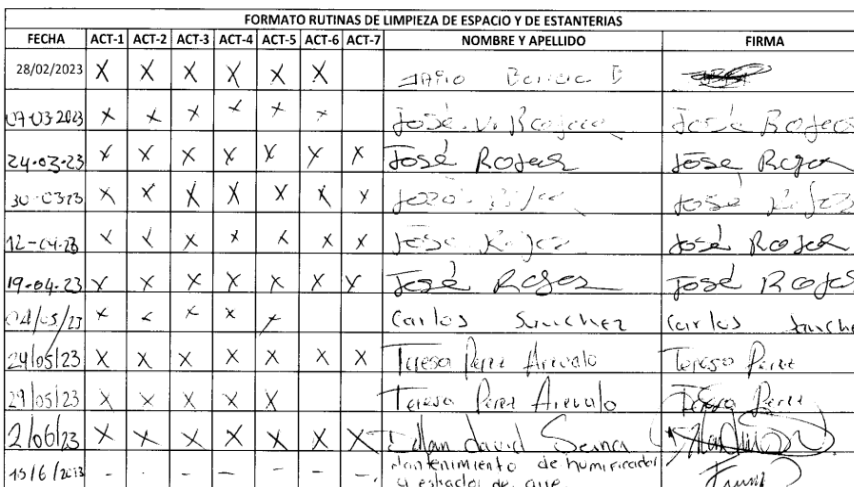 FORMATO RUTINAS DE LIMPIEZA DE ESPACIO Y DE ESTANTERIAS
FECHA ACT-1 ACT-2 ACT-3 ACT-4 ACT-5 ACT-6 ACT-7 NOMBRE Y APELLIDO FIRMA
28/02/2023 X X X X X X
07-03-2023 X X X X X X José
24-03-23 X X X X X X X José Rojas José Rojas
30-03-23 X X X X X X X José
12-04-23 X X X X X X X José Rojas José Rojas
19-04-23 X X X X X X X José Rojas José Rojas
/05/23 X X X X X Carlos Sanchez Carlos Sanche
24/05/23 X X X X X X X Teresa Perez Arevalo Teresa Perez
29/05/23 X X X X X Teresa Perez Arevalo Teresa Perez
2/06/23 X X X X X X X david
15/6/2023 - - - - - - - Mantenimiento de humificador
y de aire